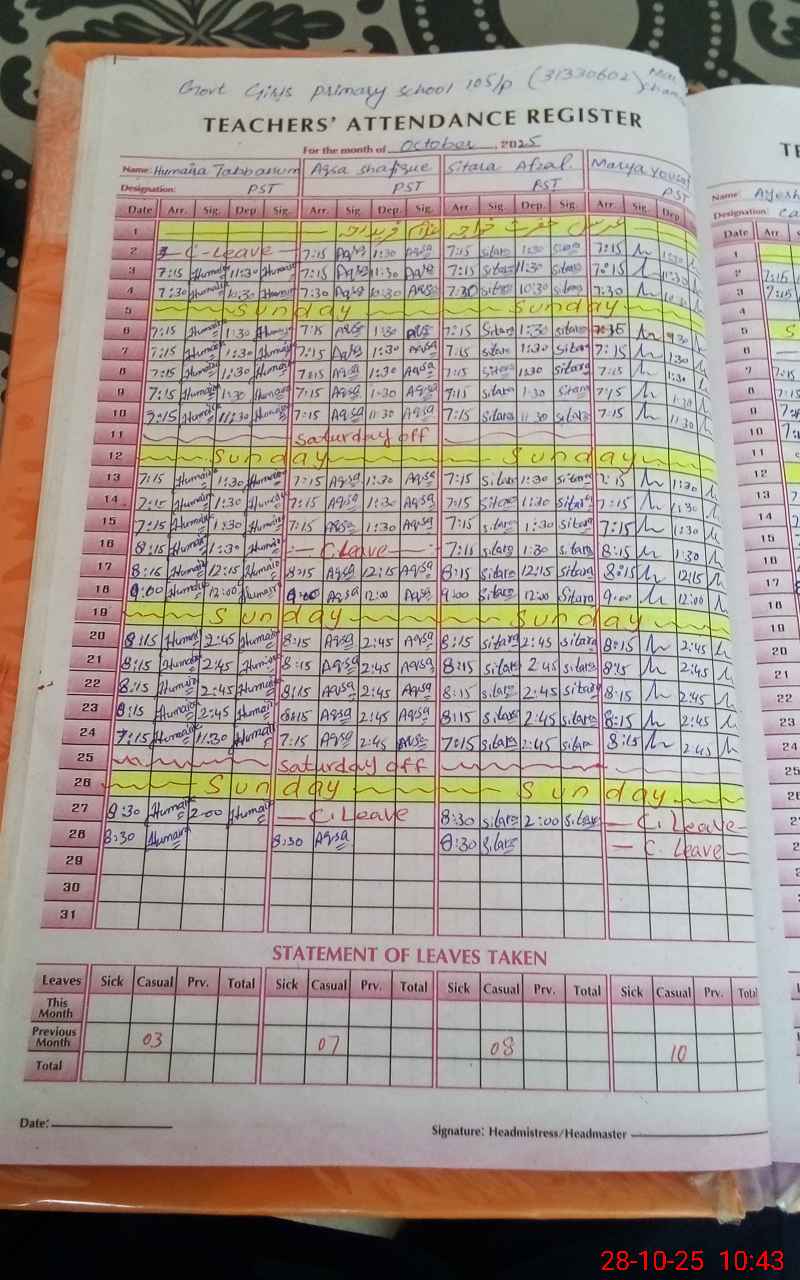 Govt Girls primary school 105/P (31330602)
TEACHERS' ATTENDANCE REGISTER
For the month of October, 2025
Name: Humaira Tabbasum Aqsa shafique Sitara Afzal Marya Yousaf
Designation: PST PST PST PST
Date Arr. Sig. Dep. Sig. Arr. Sig. Dep. Sig. Arr. Sig. Dep. Sig. Arr. Sig. Dep.
1 عرس حضرت خواجہ غلام فرید
2 C-Leave 7:15 Aqsa 1:30 Aqsa 7:15 sitara 1:30 sitara 7:15 1:30
3 7:15 Humaira 11:30 Humaira 7:15 Aqsa 11:30 Aqsa 7:15 sitara 11:30 sitara 7:15 11:30
4 7:30 Humaira 10:30 Humaira 7:30 Aqsa 10:30 Aqsa 7:30 sitara 10:30 sitara 7:30
5 Sunday Sunday
6 7:15 Humaira 1:30 Humaira 7:15 Aqsa 1:30 Aqsa 7:15 Sitara 1:30 sitara
7 7:15 Humaira 1:30 Humaira 7:15 Aqsa 1:30 Aqsa 7:15 sitara 1:30 sitara 7:15 1:30
8 7:15 Humaira 1:30 Humaira 7:15 Aqsa 1:30 Aqsa 7:15 Sitara 1:30 sitara 7:15 1:30
9 7:15 Humaira 1:30 Humaira 7:15 Aqsa 1:30 Aqsa 7:15 Sitara 1:30 Sitara 7:15 1:30
10 7:15 Humaira 11:30 Humaira 7:15 Aqsa 11:30 Aqsa 7:15 Sitara 11:30 sitara 7:15 11:30
11 saturday off
12 Sunday Sunday
13 7:15 Humaira 1:30 Humaira 7:15 Aqsa 1:30 Aqsa 7:15 sitara 1:30 sitara 7:15 1:30
14 7:15 Humaira 1:30 Humaira 7:15 Aqsa 1:30 Aqsa 7:15 Sitara 1:30 sitara 7:15 1:30
15 7:15 Humaira 1:30 Humaira 7:15 Aqsa 1:30 Aqsa 7:15 sitara 1:30 sitara 7:15 1:30
16 8:15 Humaira 1:30 Humaira C.Leave 7:15 sitara 1:30 sitara 8:15 1:30
17 8:15 Humaira 12:15 Humaira 8:15 Aqsa 12:15 Aqsa 8:15 sitara 12:15 Sitara 8:15 12:15
18 9:00 Humaira 12:00 Humaira 9:00 Aqsa 12:00 Aqsa 9:00 Sitara 12:00 Sitara 9:00 12:00
19 Sunday Sunday
20 8:15 Humaira 2:45 Humaira 8:15 Aqsa 2:45 Aqsa 8:15 sitara 2:45 sitara 8:15 2:45
21 8:15 Humaira 2:45 Humaira 8:15 Aqsa 2:45 Aqsa 8:15 sitara 2:45 sitara 8:15 2:45
22 8:15 Humaira 2:45 Humaira 8:15 Aqsa 2:45 Aqsa 8:15 sitara 2:45 sitara 8:15 2:45
23 8:15 Humaira 2:45 Humaira 8:15 Aqsa 2:45 Aqsa 8:15 sitara 2:45 sitara 8:15 2:45
24 7:15 Humaira 11:30 Humaira 7:15 Aqsa 2:45 Aqsa 7:15 sitara 2:45 sitara 8:15 2:45
25 saturday off
26 Sunday Sunday
27 8:30 Humaira 2:00 Humaira C. Leave 8:30 sitara 2:00 sitara C. Leave
28 8:30 Humaira 8:30 Aqsa 8:30 sitara C. Leave
29
30
31
STATEMENT OF LEAVES TAKEN
Leaves Sick Casual Prv. Total Sick Casual Prv. Total Sick Casual Prv. Total Sick Casual Prv. Total
This Month
Previous Month 03 07 08 10
Total
Date:
Signature: Headmistress/Headmaster
28-10-25 10:43